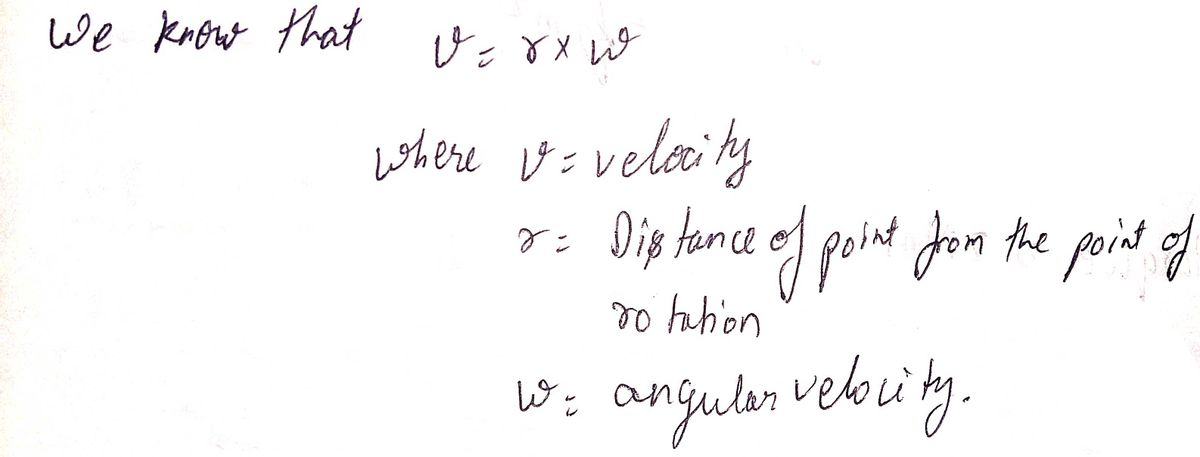 We know that v = r x w
where v = velocity
r = Distance of point from the point of
rotation
w = angular velocity.